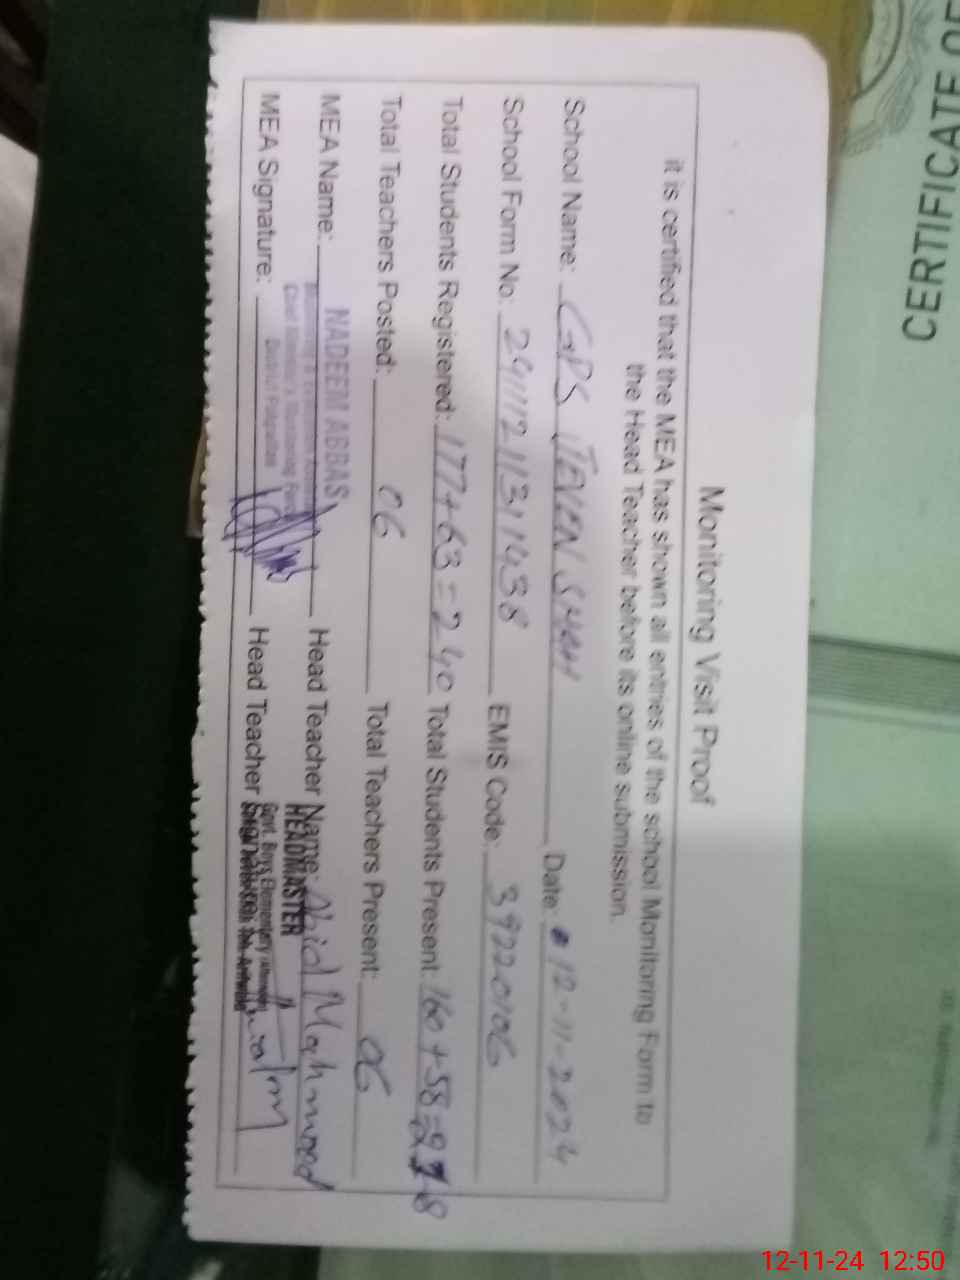 Monitoring Visit Proof
it is certified that the MEA has shown all entries of the school Monitoring Form to
the Head Teacher before its online submission.
School Name: GPS JEVEN SHAH Date: 12-11-2024
School Form No: 2411121131438 EMIS Code: 39220106
Total Students Registered: 177+63=240 Total Students Present: 160+58=218
Total Teachers Posted: 06 Total Teachers Present: 06
MEA Name: NADEEM ABBAS Head Teacher Name: Abid Mahmood
Monitoring & Evaluation Assistant
Chief Minister's Monitoring Force
District Pakpattan
HEADMASTER
Govt. Boys Elementary
MEA Signature: Head Teacher Signature:
CERTIFICATE OF
12-11-24 12:50